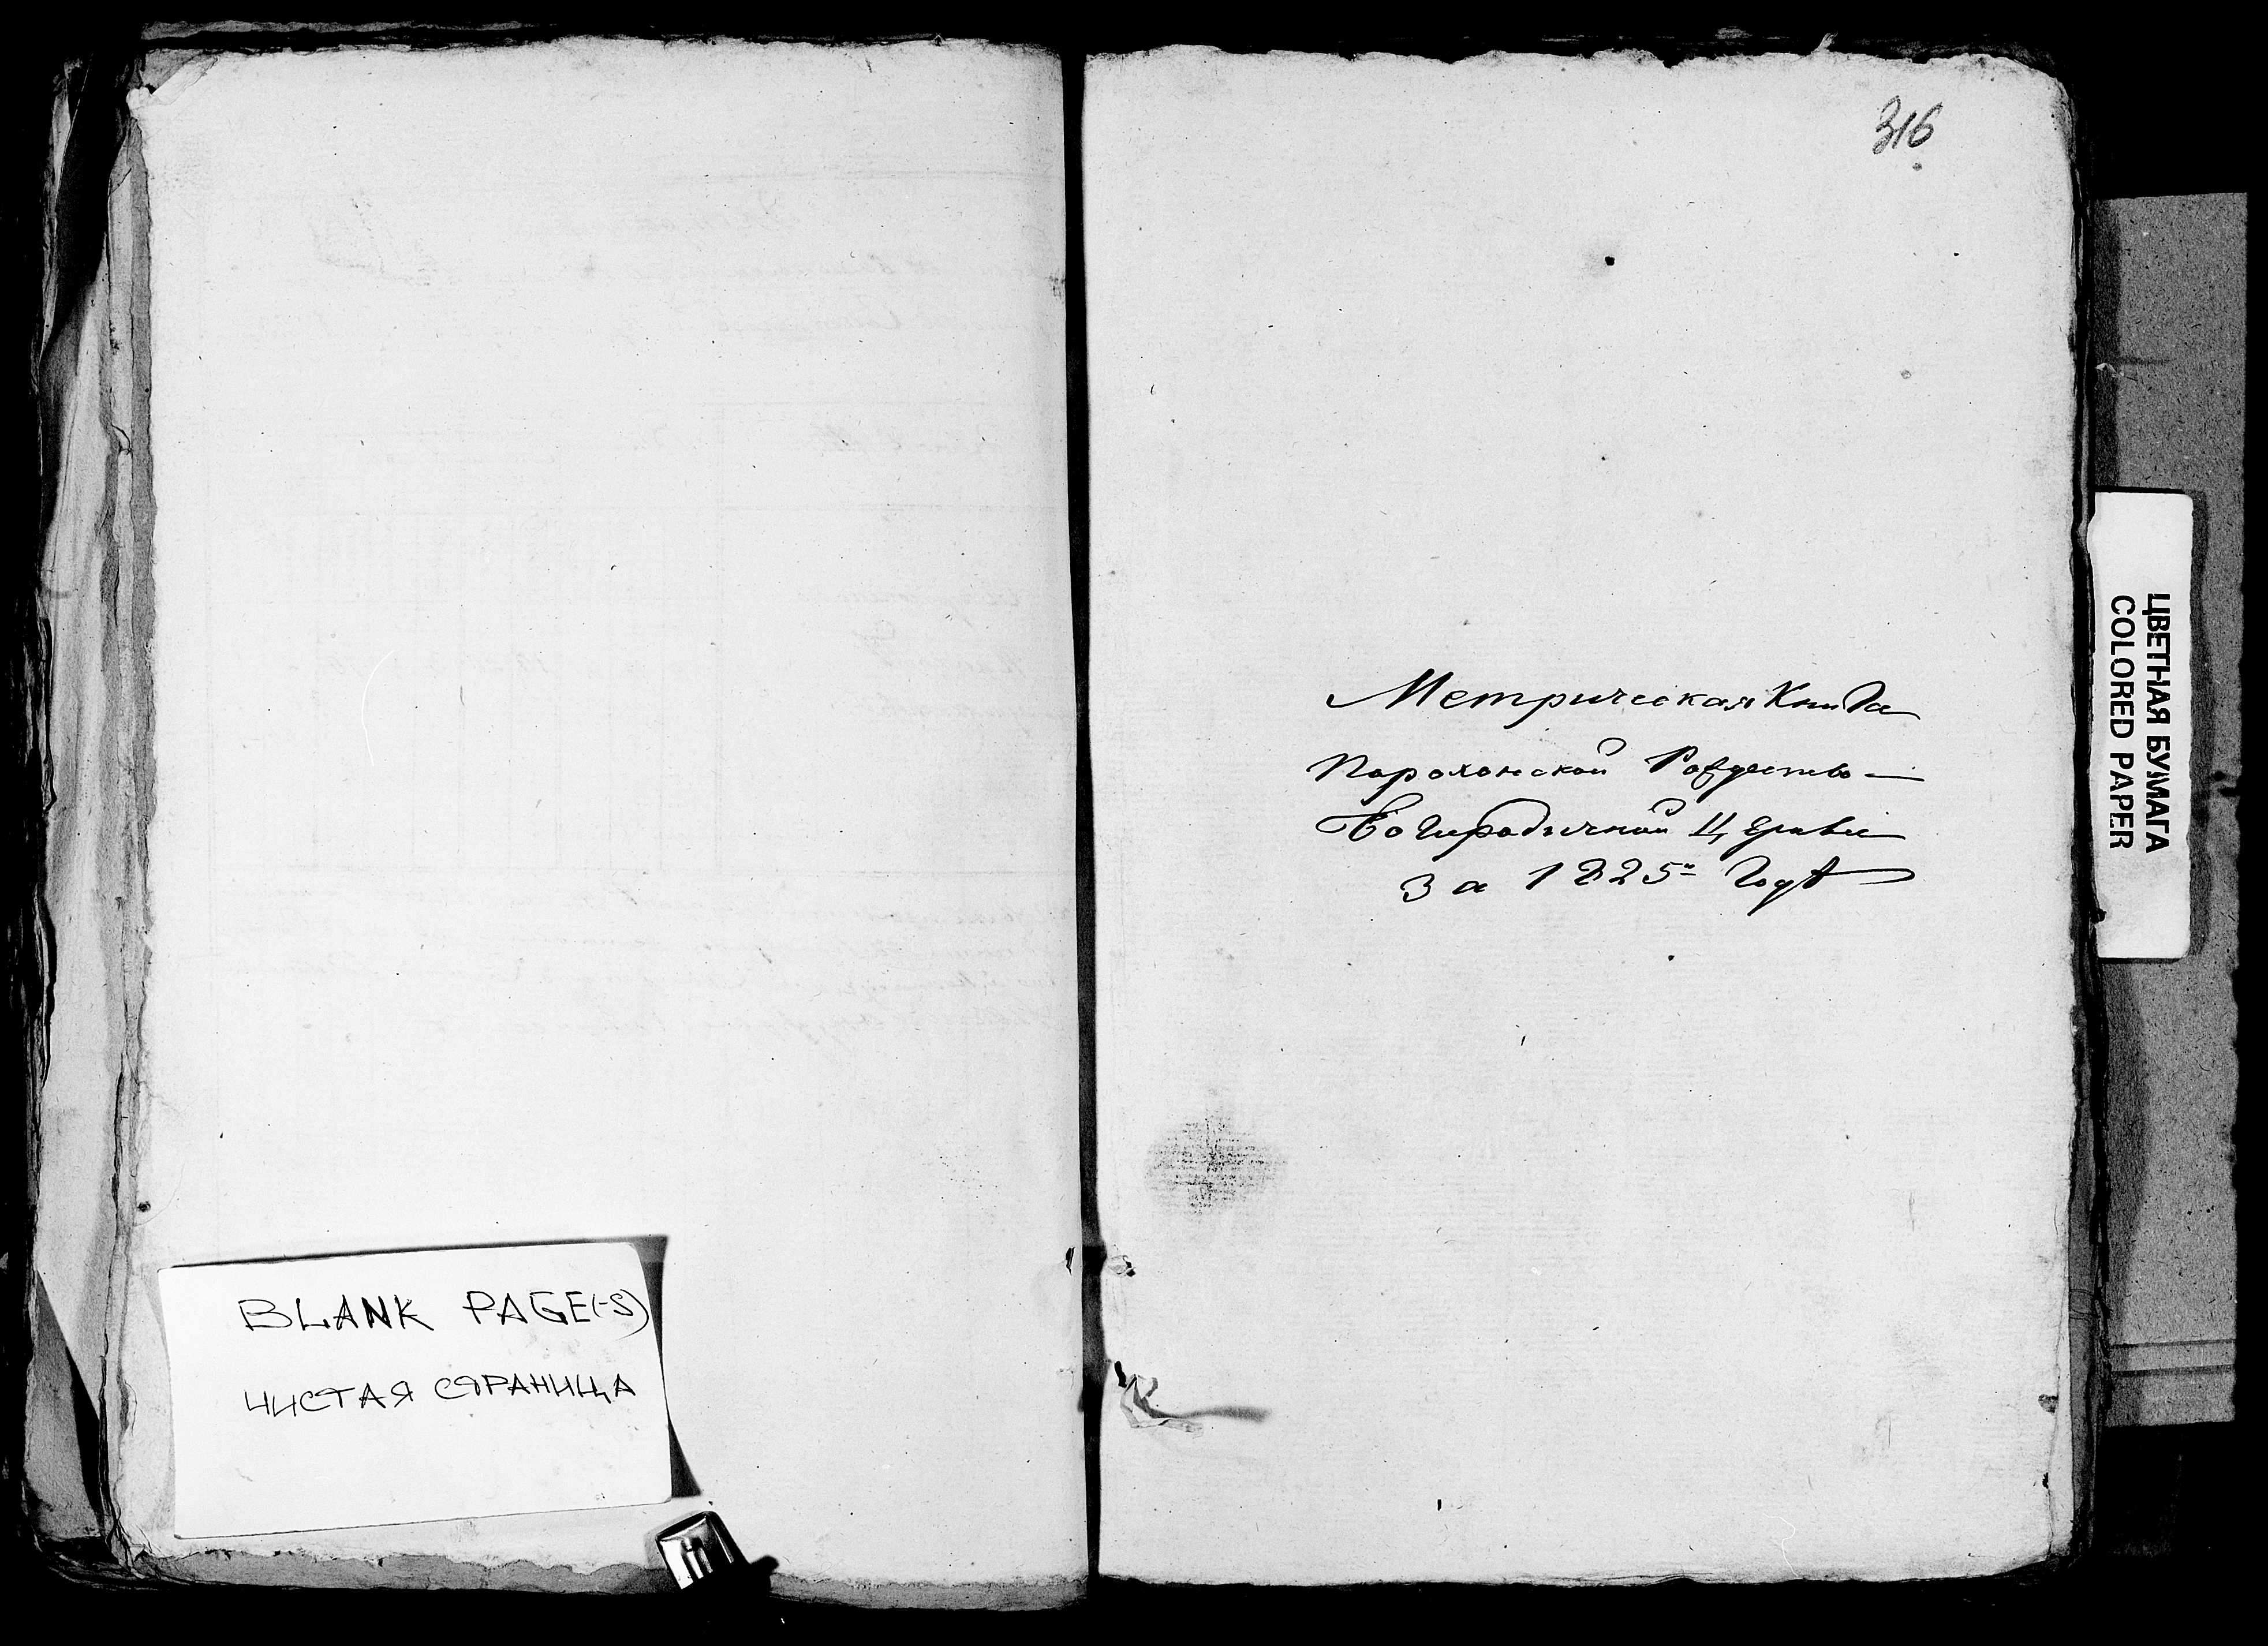 BLANK PAGE(-S)
ЧИСТАЯ СТРАНИЦА
316
Метрическая Книга
Порохонской Рождество—
Богородичной Церкви
За 1825º Годъ
ЦВЕТНАЯ БУМАГА
COLORED PAPER